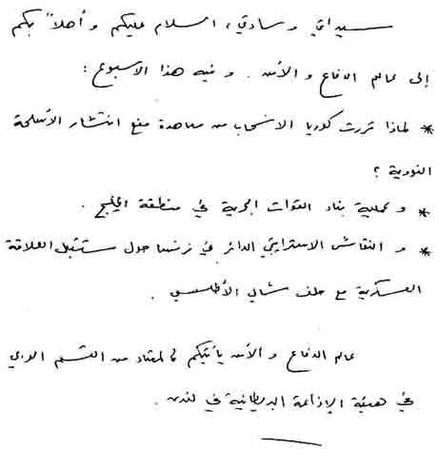 سيداتي وسادتي، السلام عليكم وأهلاً بكم
إلى عالم الدفاع والأمن. وفيه هذا الاسبوع:
* لماذا قررت كوريا الانسحاب من معاهدة منع انتشار الأسلحة
النووية؟
* وعملية بناء القوات البحرية في منطقة الخليج.
* والنقاش الاستراتيجي الدائر في فرنسا حول مستقبل العلاقة
العسكرية مع حلف شمالي الأطلسي.
عالم الدفاع والأمن يأتيكم كالمعتاد من القسم العربي
في هيئة الإذاعة البريطانية في لندن.